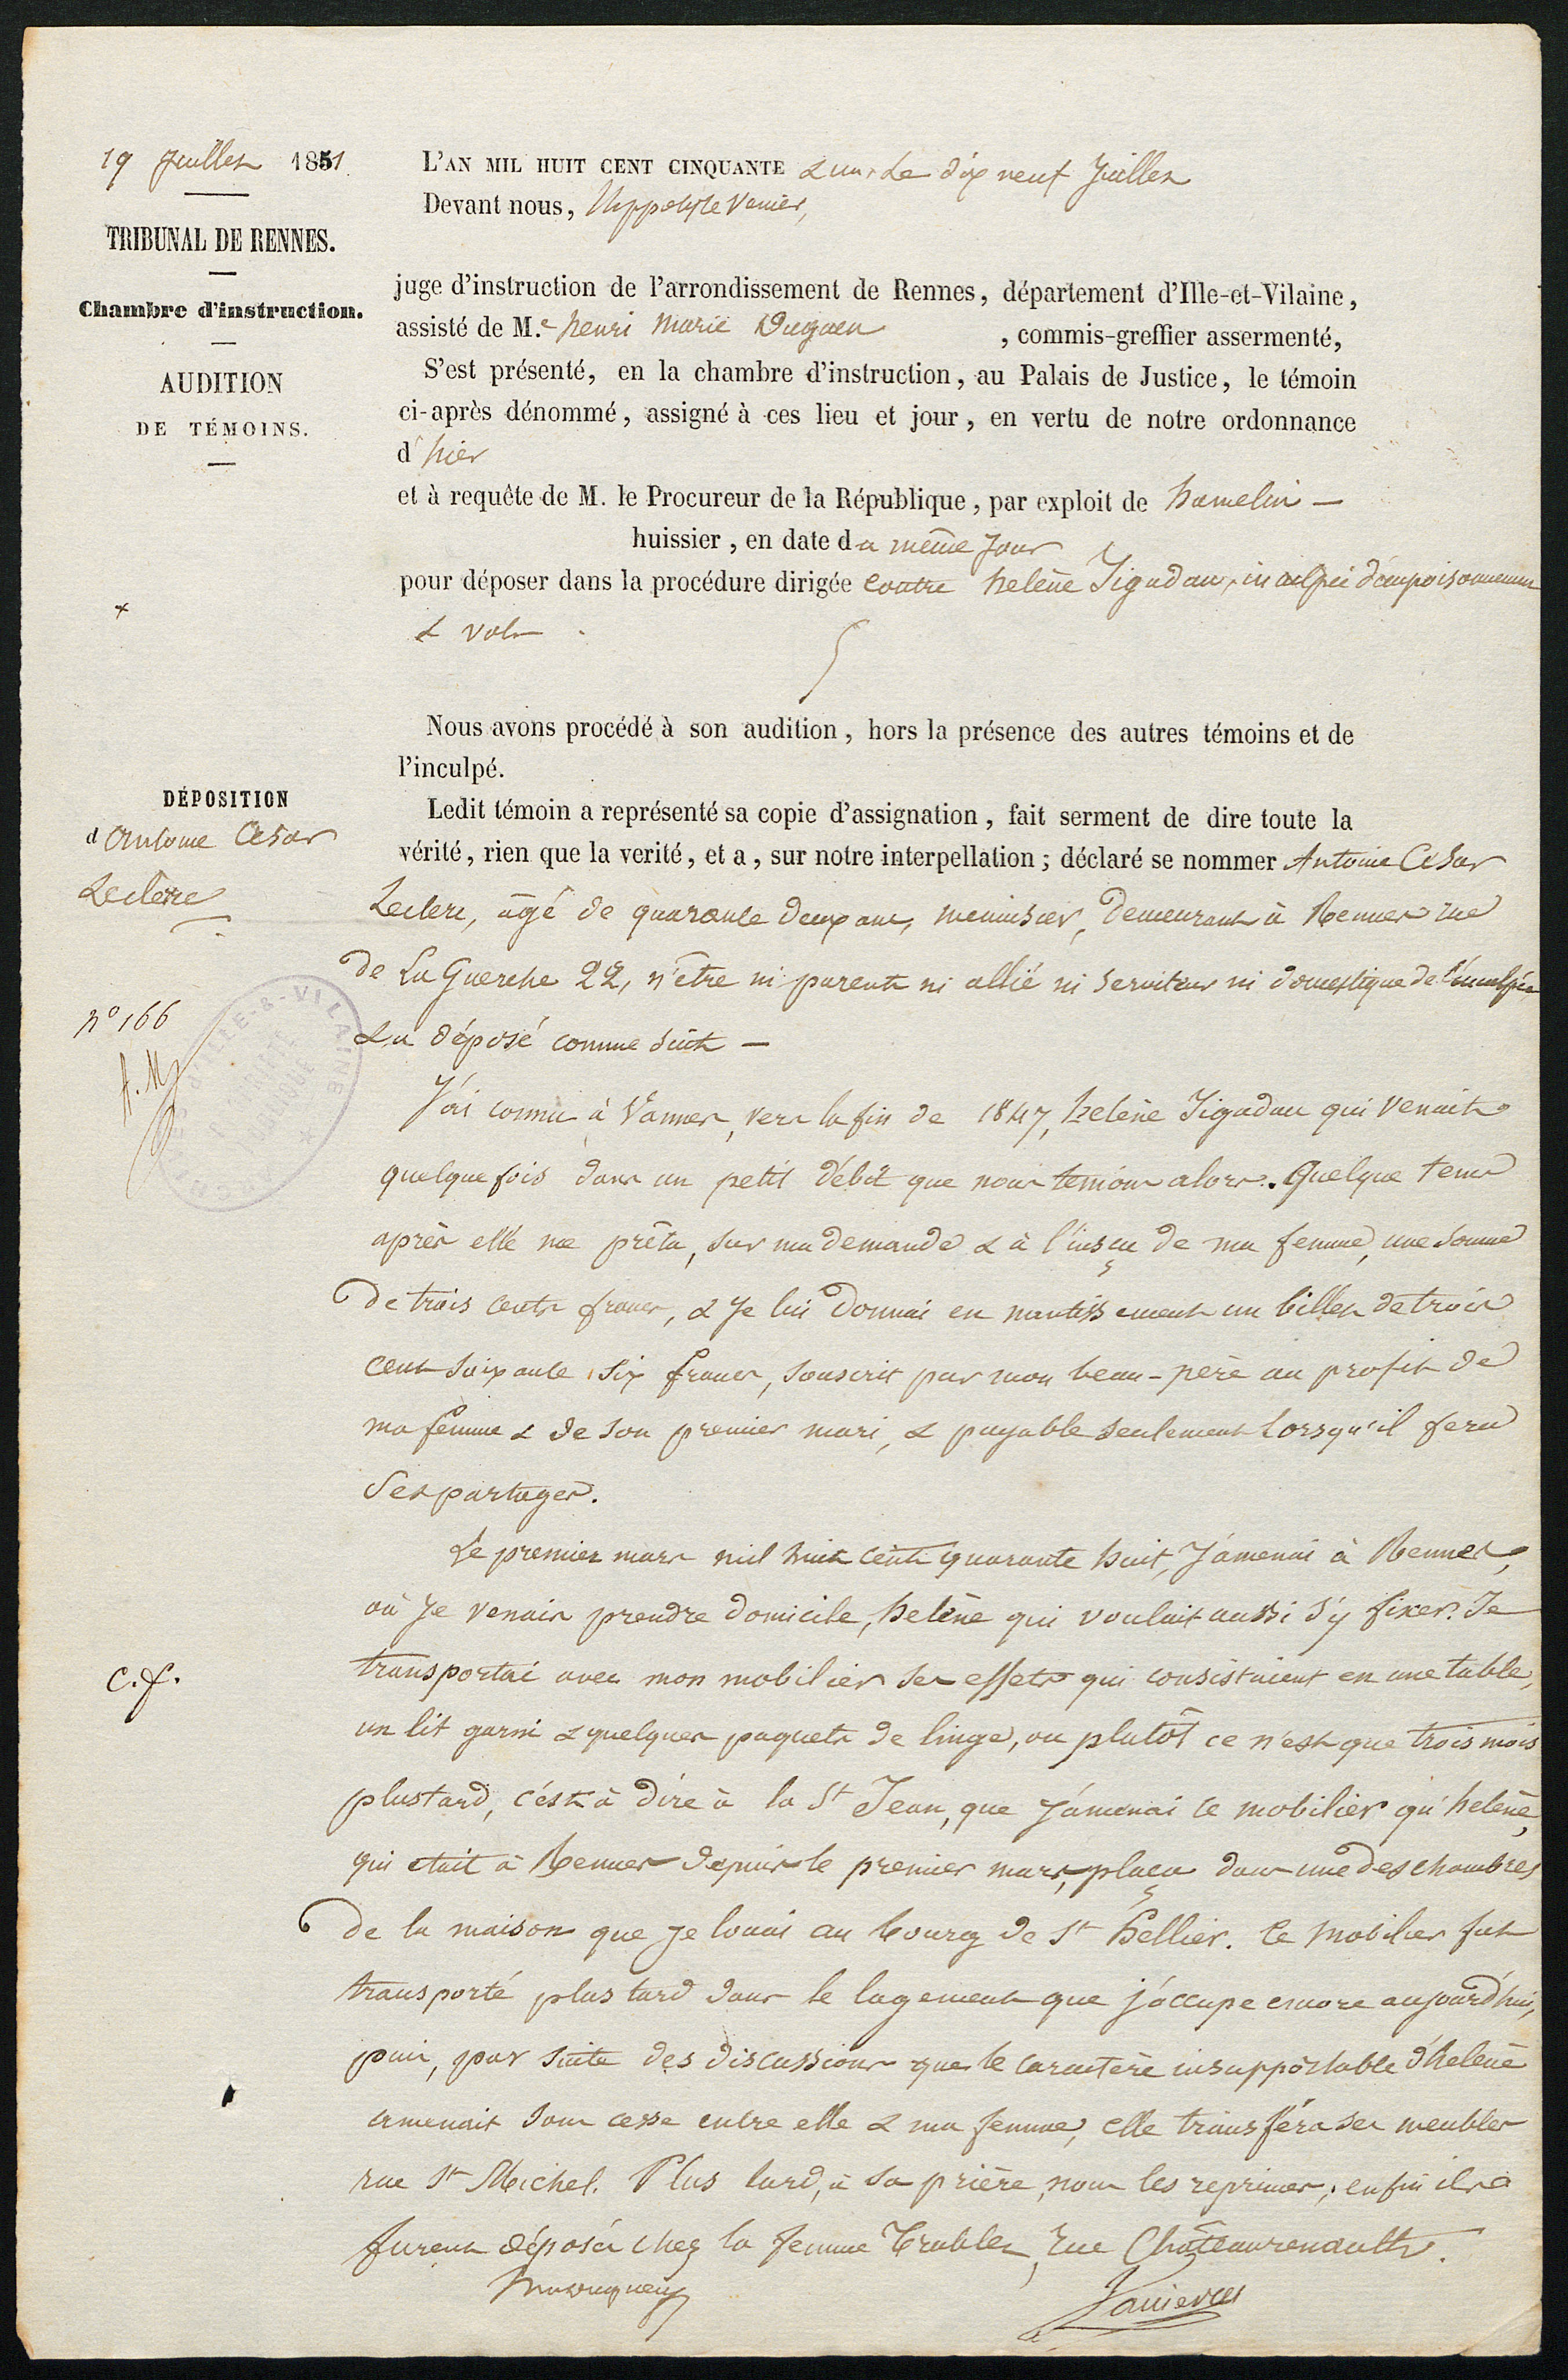 19 Juillet 1851
TRIBUNAL DE RENNES.
Chambre d'instruction.
AUDITION
DE TÉMOINS.
L'AN MIL HUIT CENT CINQUANTE & un, Le dix neuf Juillet
Devant nous, Hippolyte Vanier,
juge d'instruction de l'arrondissement de Rennes, département d'Ille-et-Vilaine,
assisté de M.e henri Marie Duguen , commis-greffier assermenté,
S'est présenté, en la chambre d'instruction, au Palais de Justice, le témoin
ci-après dénommé, assigné à ces lieu et jour, en vertu de notre ordonnance
d'hier
et à requête de M. le Procureur de la République, par exploit de hamelin —
huissier, en date du même Jour
pour déposer dans la procédure dirigée contre helène Jigadau, inculpée d'empoisonnement
& vol
Nous avons procédé à son audition, hors la présence des autres témoins et de
l'inculpé.
DÉPOSITION
d'Antoine César
Leclère
Ledit témoin a représenté sa copie d'assignation, fait serment de dire toute la
vérité, rien que la verité, et a, sur notre interpellation; déclaré se nommer Antoine César
Leclere, âgé de quarante deux ans, menuisier, Demeurant à Rennes rue
de La Guerche 22, n'être ni parent ni allié ni serviteur ni domestique de l'inculpée
& a déposé comme suit —
n° 166
D'ILLE-&-VILAINE
J'ai connu à Vannes, vers la fin de 1847, helène Jigadau qui venait
quelque fois dans un petit débit que nous tenions alors. Quelque tems
après elle me prêta, sur ma demande & à l'insçu de ma femme, une somme
de trois cents francs, & Je lui donnai en nantissement un billet de trois
cent soixante six francs, souscrit par mon beau-père au profit de
ma femme & de son premier mari, & payable seulement lorsqu'il fera
ses partages.
Le premier mars mil huit cent quarante huit, J'amenai à Rennes,
où Je venais prendre domicile, helène qui voulait aussi s'y fixer. Je
C. f.
transportai avec mon mobilier ses effets qui consistaient en une table,
un lit garni & quelques paquets de linge, ou plutôt ce n'est que trois mois
plus tard, c'est à dire à la St Jean, que J'amenai ce mobilier qu'helène,
qui était à Rennes depuis le premier mars, plaça dans une des chambres
de la maison que Je louai au bourg de St hellier. Ce mobilier fut
transporté plus tard dans le logement que j'occupe encore aujourd'hui,
puis, par suite des discussions que le caractère insupportable d'helène
amenait sans cesse entre elle & ma femme, elle transféra ses meubles
rue St Michel. Plus tard, à sa prière, nous les reprimes; enfin ils
furent déposés chez la femme Trublet, rue Châteaurenault.
Vanier